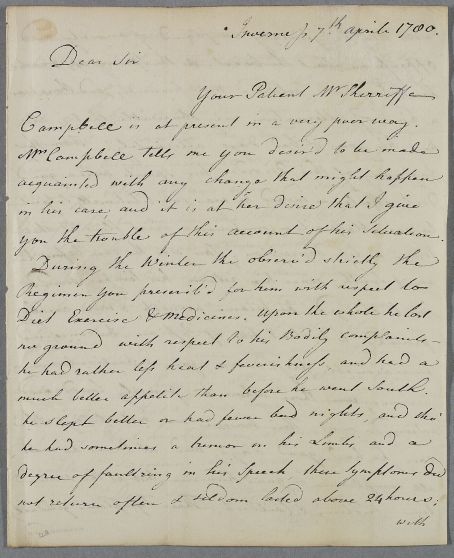 Inverness 7th April 1780.
Dear Sir
Your Patient Mr Sherriffe
Campbell is at present in a very poor way.
Mrs Campbell tells me you desir'd to be made
acquainted with any change that might happen
in his case, and it is at her desire that I give
you the trouble of this account of his Situation.
During the Winter he observ'd strictly the
Regimen you prescrib'd for him with respect to
Diet Exercise & Medicines. Upon the whole he lost
no ground with respect to his Bodily complaints
he had rather less heat & feverishness, and had a
much better appetite than before he went South.
he slept better or had fewer bad nights, and tho'
he had sometimes a tremor in his Limbs and a
degree of faultring in his Speech these Symptoms did
not return often & seldom lasted above 24 hours;
with